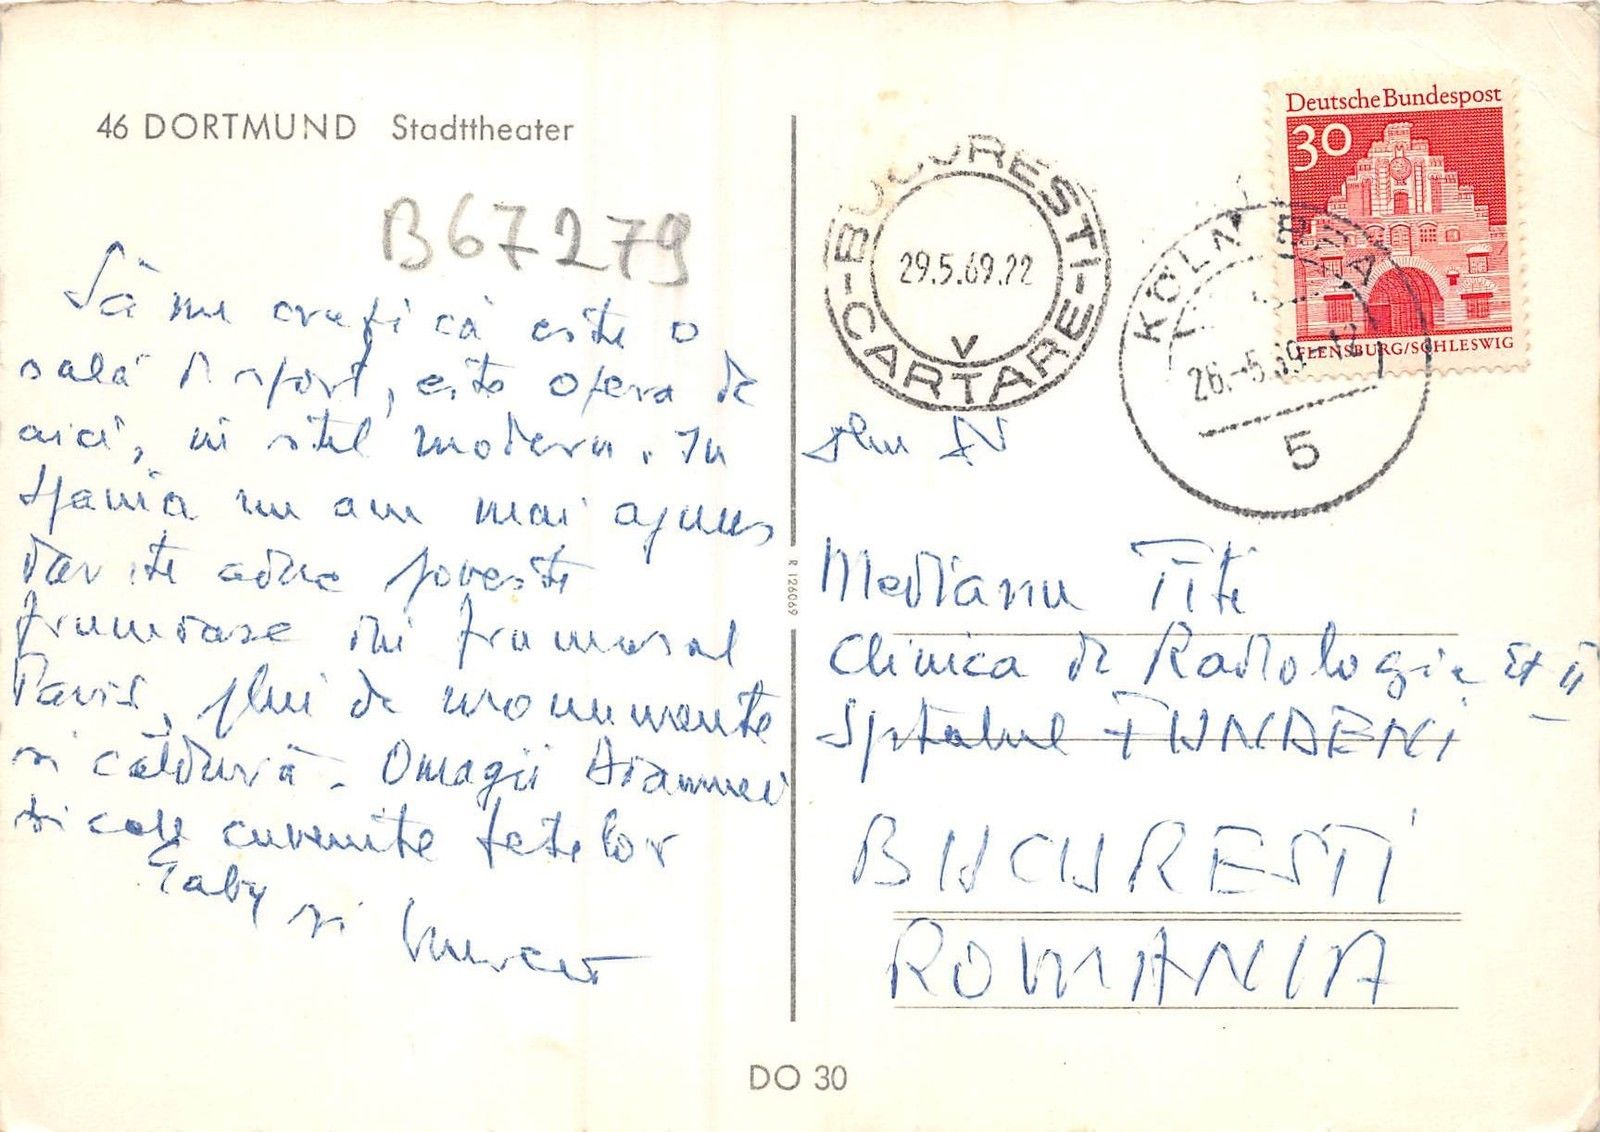 46 DORTMUND Stadttheater
B67279
Să nu crezi că este o
sală de sport, este opera de
aici, în stil modern. In
Spania nu am mai ajuns
dar îți aduc povești
frumoase din frumosul
Paris, plin de monumente
și căldură. Omagii Doamnei
și cele cuvenite fetelor
Gaby și
Deutsche Bundespost
30
FLENSBURG/SCHLESWIG
BUCURESTI
29.5.69.22
V
CARTARE
KÖLN
26.-5.69
5
R 126069
Medianu Titi
Clinica de Radiologie et II
Spitalul FUNDENI
BUCURESTI
ROMANIA
DO 30